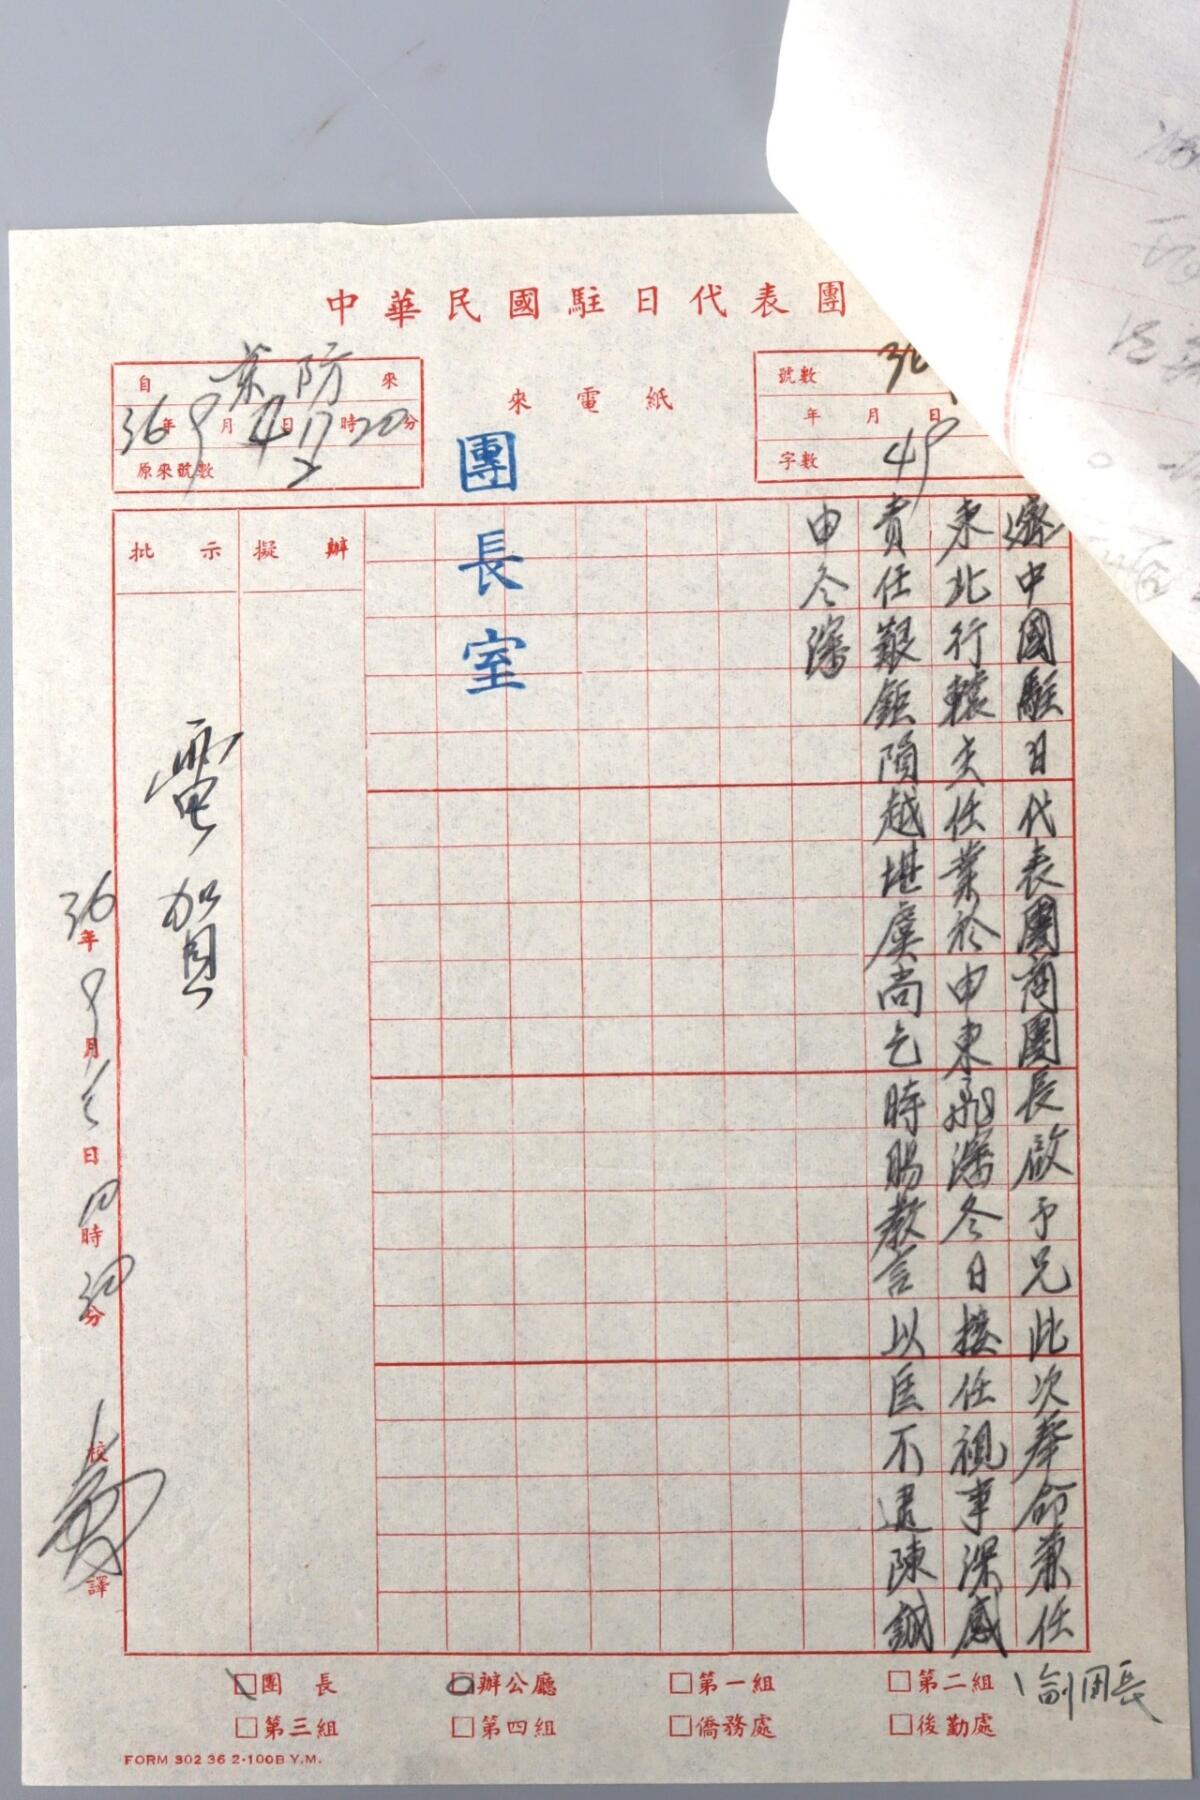 中華民國駐日代表團
來電紙
自 葉防 來
36年9月4日17時20分
原來號數
號數 36
年 月 日
字數 49
團長室
批示
擬辦
中國駐日代表團商團長啟予兄此次奉命兼任
東北行轅主任業於申東飛瀋冬日接任視事深感
責任艱鉅隕越堪虞尚乞時賜教言以匡不逮陳誠
申冬瀋
電賀
36年9月 日 時 分
校
譯
□團長 □辦公廳 □第一組 □第二組 副團長
□第三組 □第四組 □僑務處 □後勤處
FORM 302 36 2-100B Y.M.